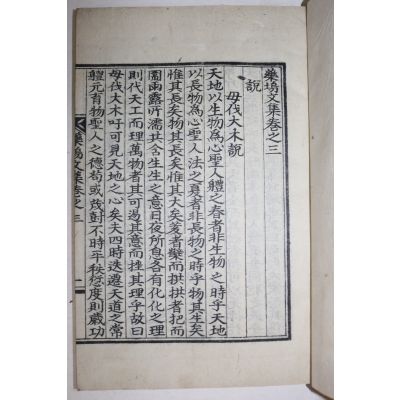 藥塢文集卷之三
說
毋伐大木說
天地以生物爲心聖人體之春者非生物之時乎天地
以長物爲心聖人法之夏者非長物之時乎物其生矣
惟其長矣物其長矣惟其大矣爰者蘖而拱拱者把而
園雨露所濡其含生生之意日夜所息各有化化之理
則代天工而理萬物者其可遏其意而挫其理乎故曰
毋伐大木吁可見天地之心矣夫四時迭遷天道之常
軆元育物聖人之德苟或茂對不時平秩愆度則歲功
藥塢文集卷之三 一